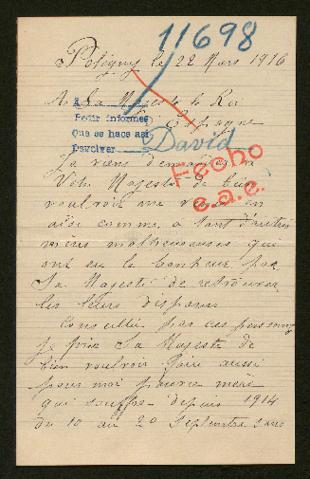 11698
Potigny le 22 Mars 1916
A Sa Majesté le Roi
d'Espagne
A
Pedir informes
Que se hace así
Devolver
David
Fecho
e.a.e.
Je viens demander à
Votre Majesté de bien
vouloir me venir en
aide comme a tant d'autres
mères malheureuses qui
ont eu le bonheur par
Sa Majesté de retrouver
les leurs disparus
Conseillée par ces personnes
je prie Sa Majesté de
bien vouloir faire aussi
pour moi pauvre mère
qui souffre depuis 1914
du 10 au 20 Septembre sans